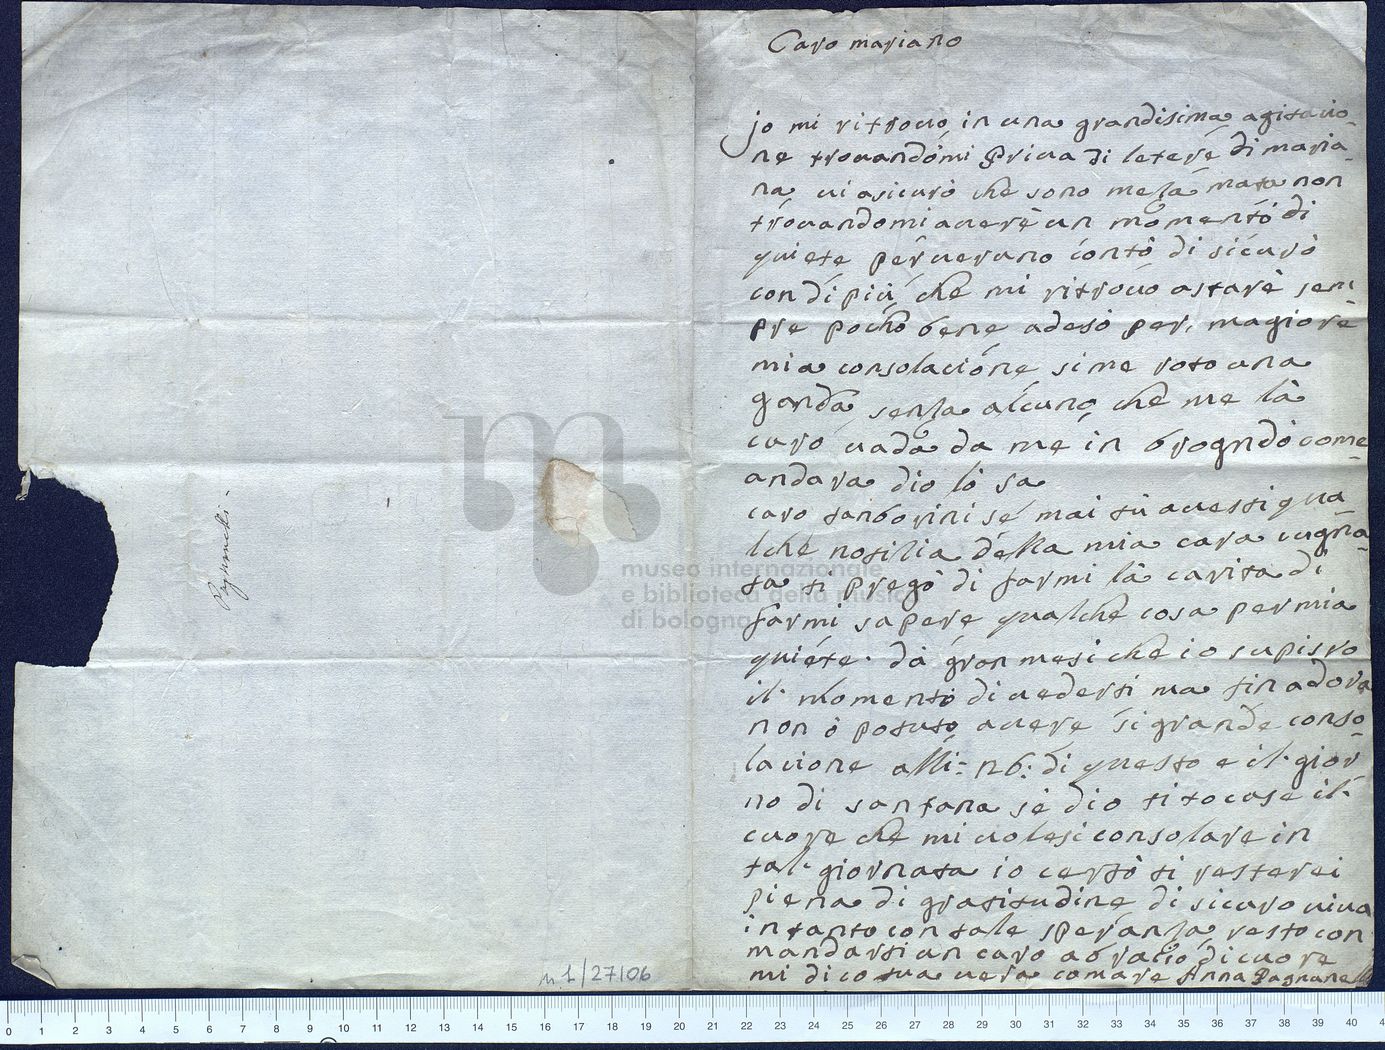 Caro mariano
jo mi ritrouo in una grandisima agitacio-
ne trouandomi Priua di letere di maria-
na ui asicuro che sono meza mata non
trouandomi auere un momento di
quiete per ueruno conto di sicuro
con di più che mi ritrouo astare sem-
pre pocho bene adeso per magiore
mia consolacione si me roto una
ganba senza alcuno che me la
curo uada da me in brogndo come
andara dio lo sa
caro tanborini se mai tu auessi qua
lche notilia della mia cara cugna-
ta ti prego di farmi la carita di
farmi sapere qualche cosa per mia
quiete. da gran mesi che io supisro
il momento di uederti ma fin adora
non ò potuto auere si grande conso-
lacione alli: 26: di questo e il gior
no di santana se dio ti tocase il
cuore che mi uolesi consolare in
tal giornata io certo ti resterei
piena di gratitudine di sicuro uiua
in tanto con tale speranza resto con
mandarti un caro abracio di cuore
mi dico tua uera comare Anna Pagnanelli
museo internazionale
e biblioteca della musica
di bologna
n 1/27106
0 1 2 3 4 5 6 7 8 9 10 11 12 13 14 15 16 17 18 19 20 21 22 23 24 25 26 27 28 29 30 31 32 33 34 35 36 37 38 39 40